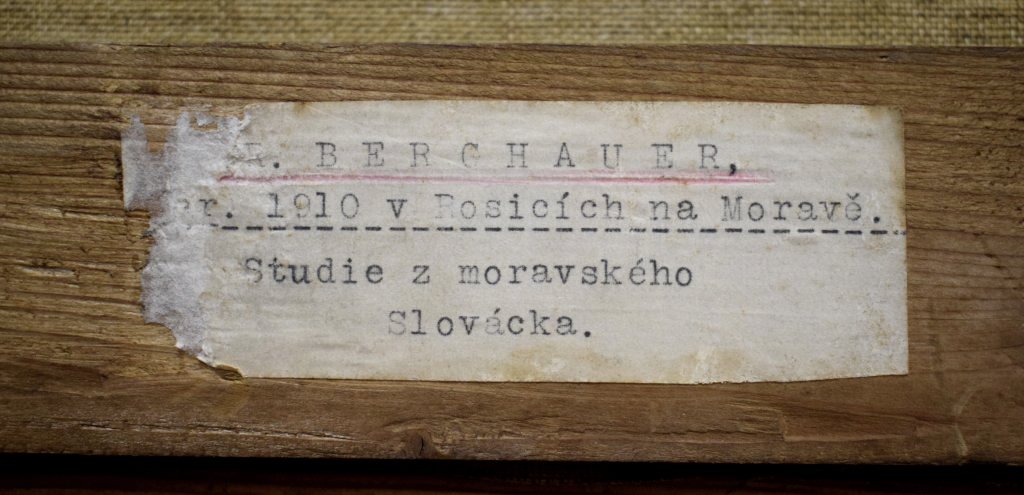 R. BERGHAUER,
ar. 1910 v Rosicích na Moravě.
Studie z moravského
Slovácka.